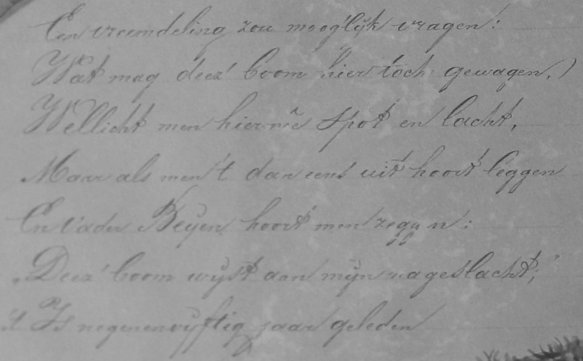 Een vreemdeling zou mooglijk vragen:
Wat mag deez' boom hier toch gewagen,)
Wellicht men hierme spot en lacht,
Maar als men 't dan eens uit hoort leggen
En vader Beijen hoort men zeggen:
"Deez' boom wijst aan mijn nageslacht;"
't Is negenenvijftig jaar geleden